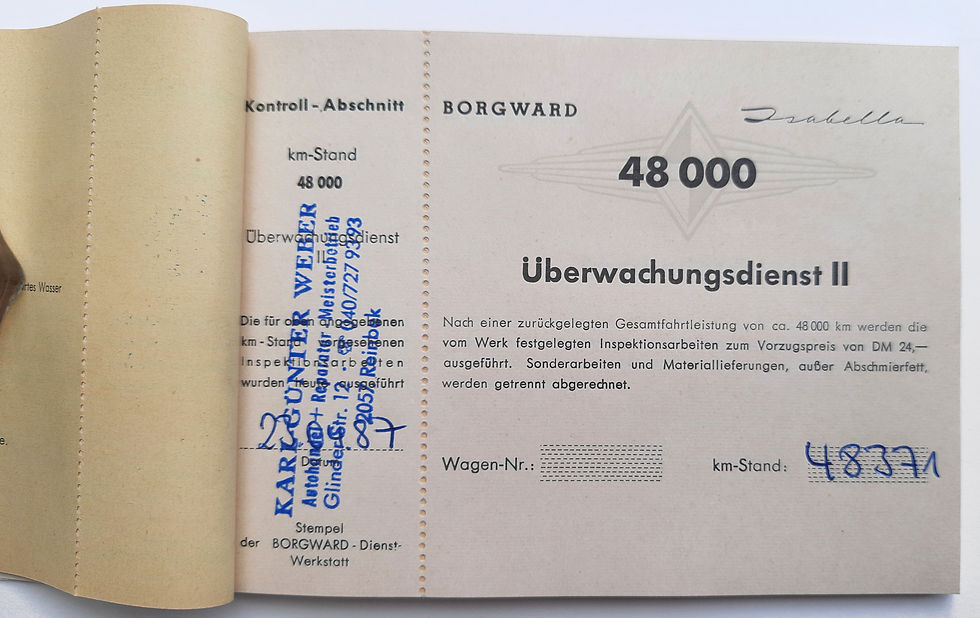 rtes Wasser
e.
Kontroll-Abschnitt
km-Stand
48 000
Überwachungsdienst
II
Die für oben angegebenen
km-Stand vorgesehenen
Inspektionsarbeiten
wurden heute ausgeführt
Datum
Stempel
der BORGWARD-Dienst-
Werkstatt
KARL GÜNTER WEBER
Autohandel + Reparatur-Meisterbetrieb
Glinder Str. 12 040/7279393
2057 Reinbek
BORGWARD
Isabella
48 000
Überwachungsdienst II
Nach einer zurückgelegten Gesamtfahrtleistung von ca. 48 000 km werden die
vom Werk festgelegten Inspektionsarbeiten zum Vorzugspreis von DM 24,—
ausgeführt. Sonderarbeiten und Materiallieferungen, außer Abschmierfett,
werden getrennt abgerechnet.
Wagen-Nr.: km-Stand: 48371